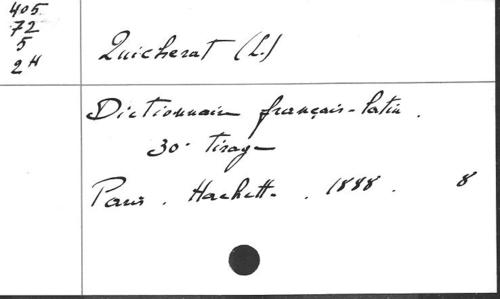 405
72
5
2H
Quicherat (L.)
Dictionnaire français-latin.
30e tirage
Paris. Hachette. 1888. 8